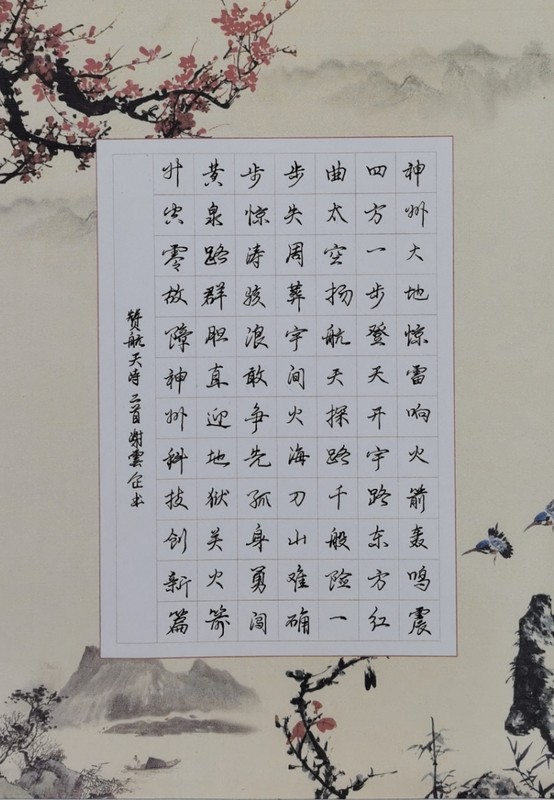 神州大地惊雷响火箭轰鸣震
四方一步登天开宇路东方红
曲太空扬航天探路千般险一
步失周葬宇间火海刀山难确
步惊涛骇浪敢争先孤身勇闯
黄泉路群胆直迎地狱关火箭
升空零故障神州科技创新篇
赞航天诗二首谢雲企书